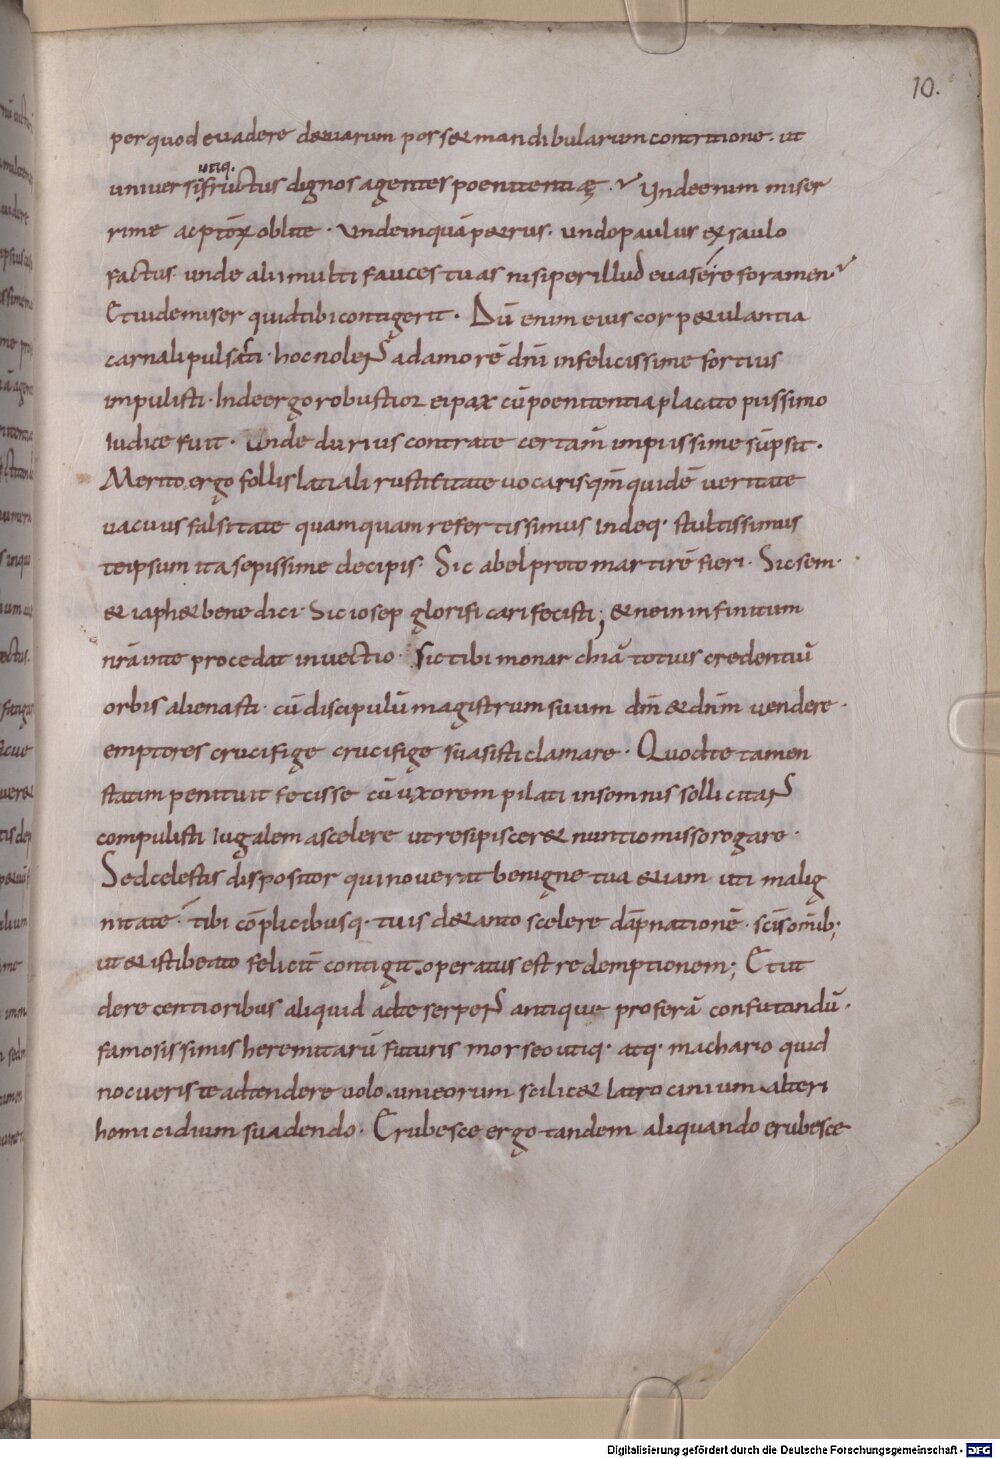 10.
per quod evadere dentium posset mandibularum contritione. ut
utiq.
universis fructus dignos agentes poenitentię. Unde enim miser
rime ac ptoꝝ oblite. unde inquā petrus. unde paulus ex saulo
factus. unde alii multi fauces tuas nisi per illud evasere foramen
Et vide miser quid tibi contigerit. Dū enim eius cor petulantia
carnali pulsasti. hoc nolens ad amorē dn̄i infelicissime fortius
impulisti. Inde ergo robustior ei pax cū poenitentia placato piissimo
Iudice fuit. Unde durius contra te certam̄ impiissime sūpsit.
Merito ergo follis latiali rusticitate vocaris qm̄ quidē veritate
vacuus falsitate quamquam refertissimus Indeq. stultissimus
teipsum ita sepissime decipis. Sic abel protomartirē fieri. Sic sem.
& iaph& benedici. Sic iosep glorificari fecisti; & ne in infinitum
nr̄a in te procedat invectio. Sic tibi monarchiā totius credentiū
orbis alienasti. cū discipulū magistrum suum dm̄ & dn̄m vendere.
emptores crucifige crucifige suasisti clamare. Quod te tamen
statim penituit fecisse cū uxorem pilati in somnis sollicitans
compulisti Iugalem a scelere ut resipiscer& nuntio misso rogare.
Sed celestis dispositor qui noverat benigne tua etiam uti malig
nitate. tibi cōplicibusq. tuis de tanto scelere dāpnationē. scīs om̄ib;
ut & isti beato feliciť contigit. operatus est redemptionem; Et ut
de recentioribus aliquid ad te serpens antique proferā confutandū.
famosissimis heremitarū futuris morseo utiq. atq. machario quid
nocueris te adtendere volo. uni eorum scilic& latrocinium. alteri
homicidium suadendo. Erubesce ergo tandem aliquando erubesce
Digitalisierung gefördert durch die Deutsche Forschungsgemeinschaft - DFG